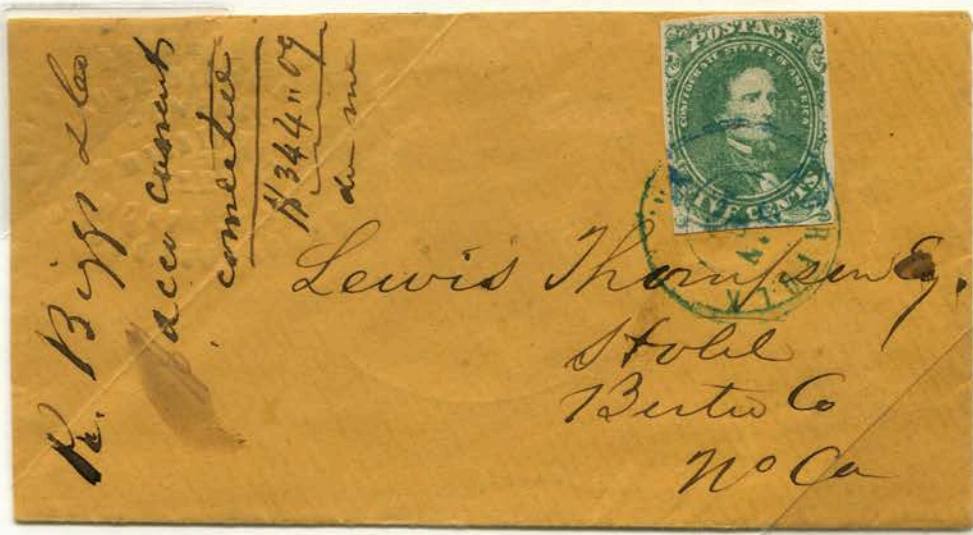 K. Biggs & Co
acco current
corrected
$344"09
due me
POSTAGE
CONFEDERATE STATES OF AMERICA
FIVE CENTS
Lewis Thompson Esq.
Hotel
Bertie Co
No Ca